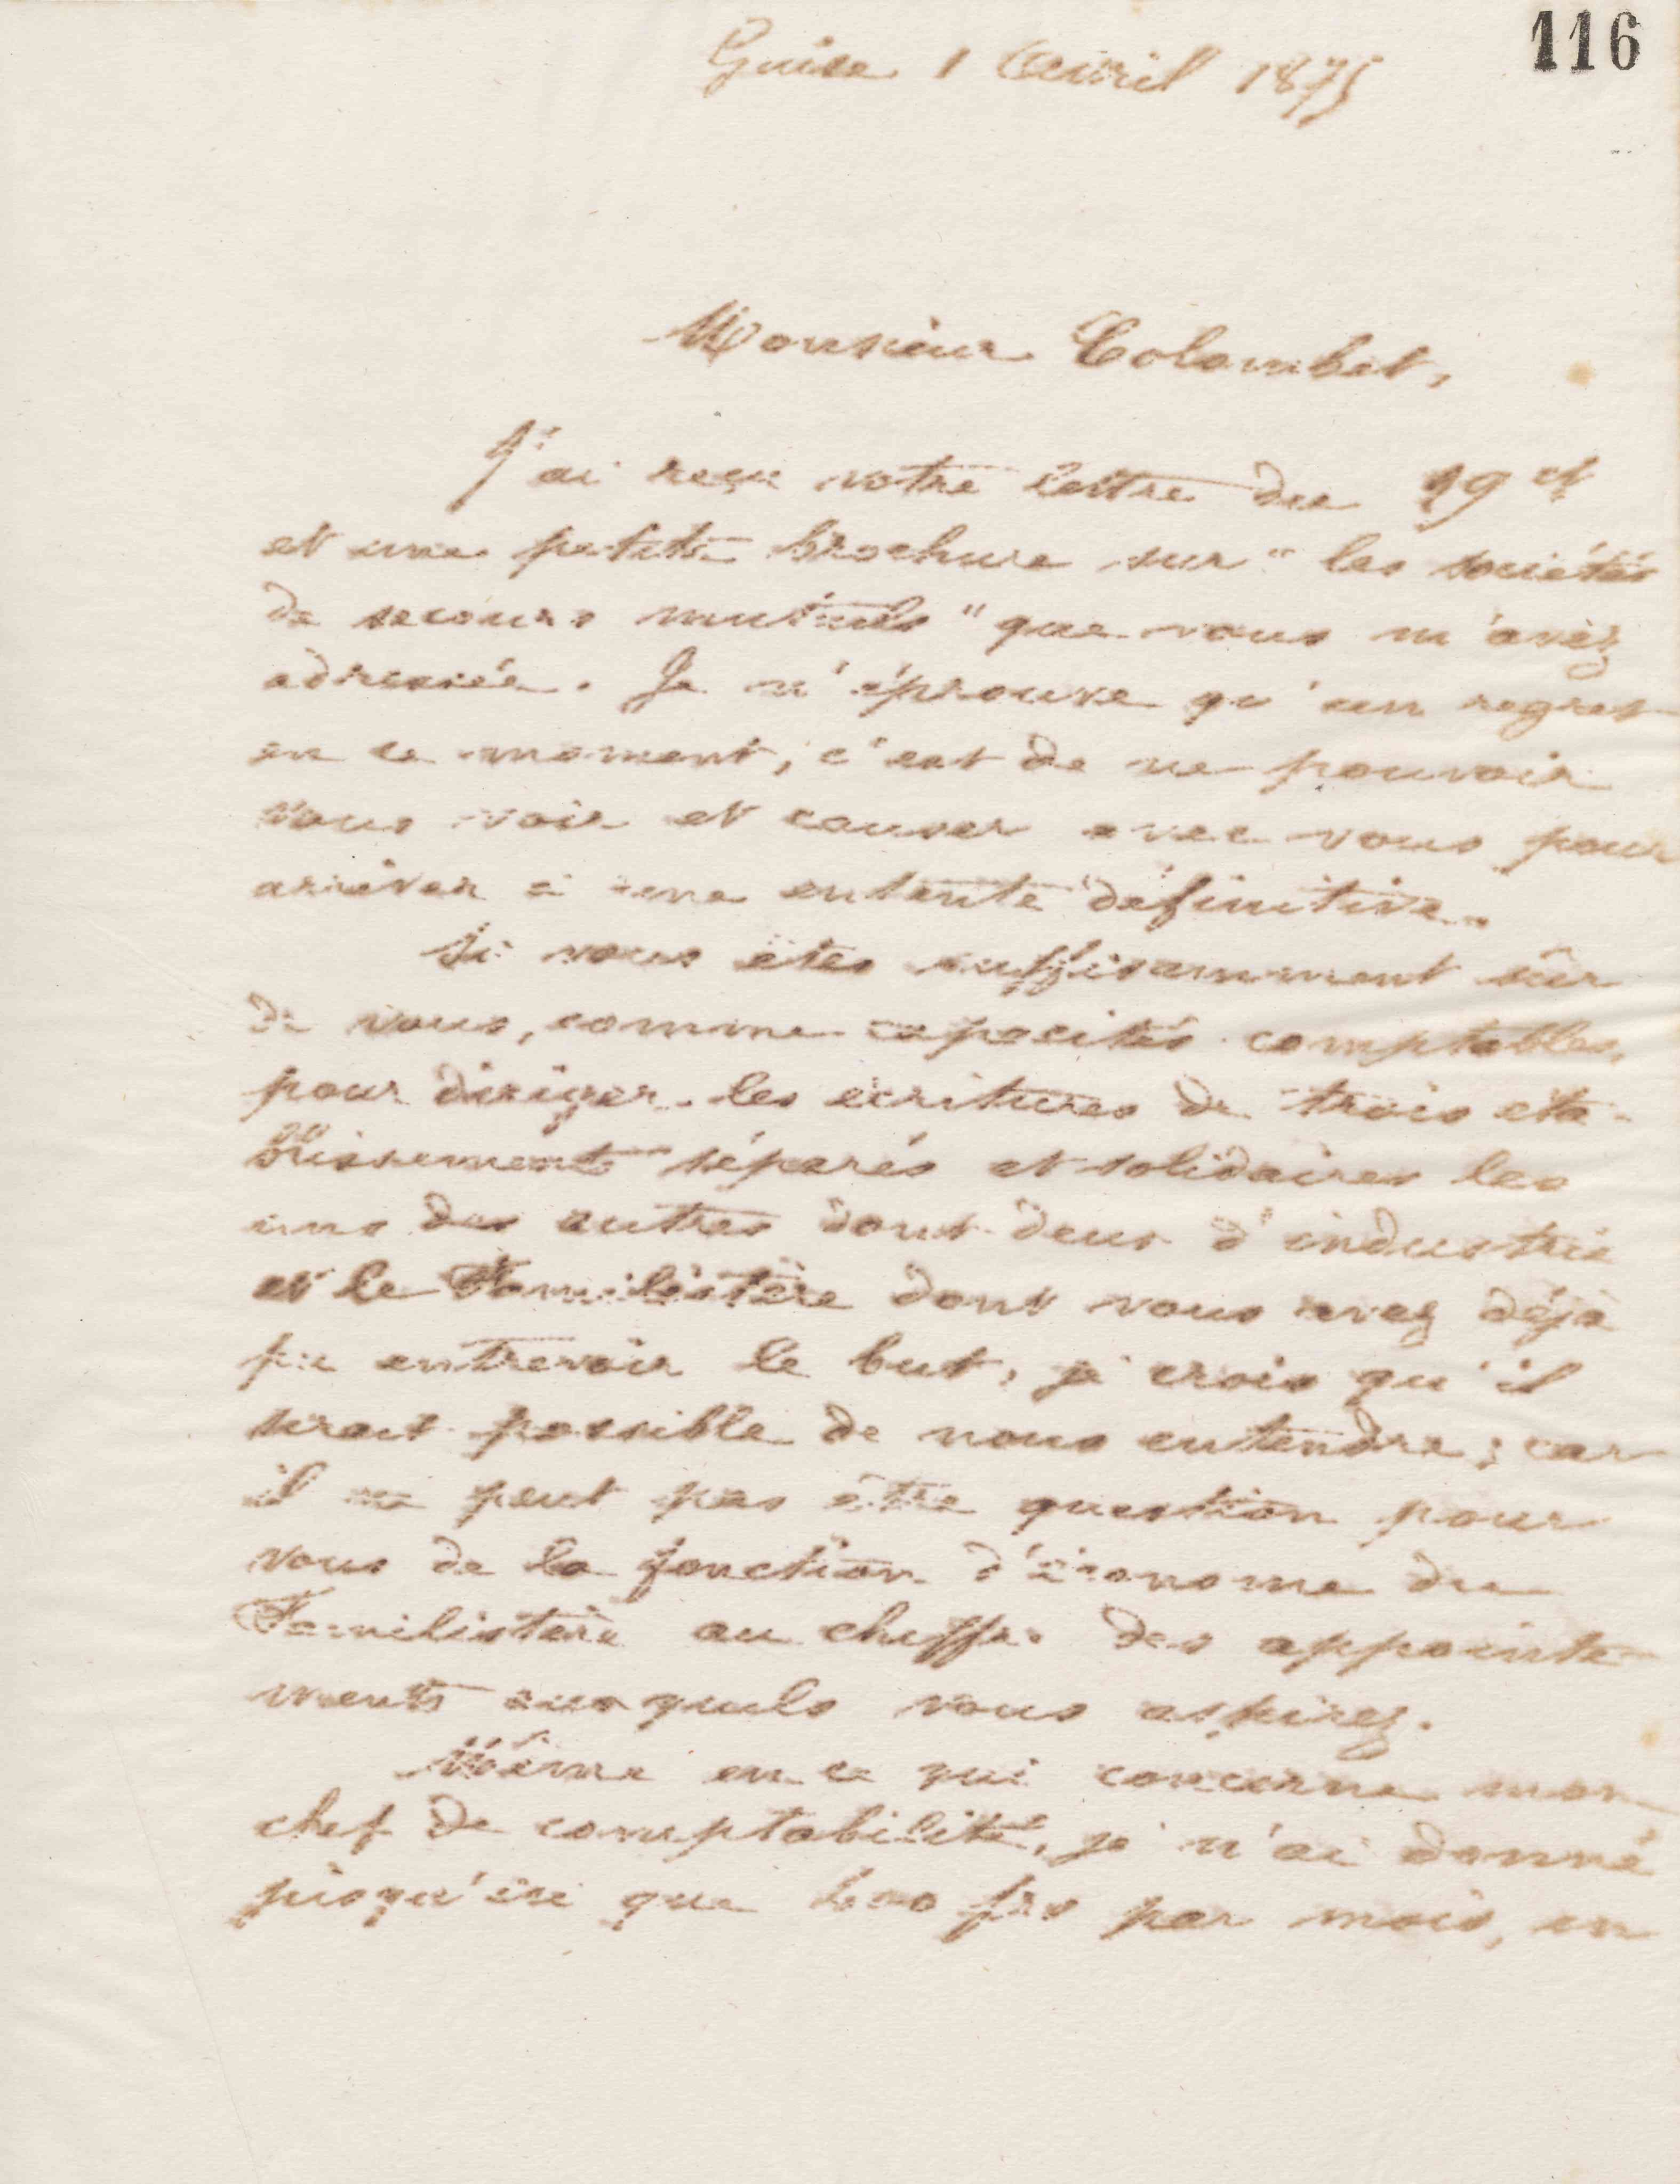 116
Guise 1 Avril 1875
Monsieur Colombet,
J'ai reçu votre lettre du 19 ct
et une petite brochure sur "les sociétés
de secours mutuels" que vous m'avez
adressée. Je n'éprouve qu'un regret
en ce moment, c'est de ne pouvoir
vous voir et causer avec vous pour
arriver à une entente définitive.
Si vous êtes suffisamment sûr
de vous, comme capacités comptables,
pour diriger les écritures de trois éta-
blissements séparés et solidaires les
uns des autres dont deux d'industrie
et le Familistère dont vous avez déjà
pu entrevoir le but, je crois qu'il
serait possible de nous entendre; car
il ne peut pas être question pour
vous de la fonction d'économe du
Familistère au chiffre des appointe-
ments auxquels vous aspirez.
Même en ce qui concerne mon
chef de comptabilité, je n'ai donné
jusqu'ici que frs par mois, en